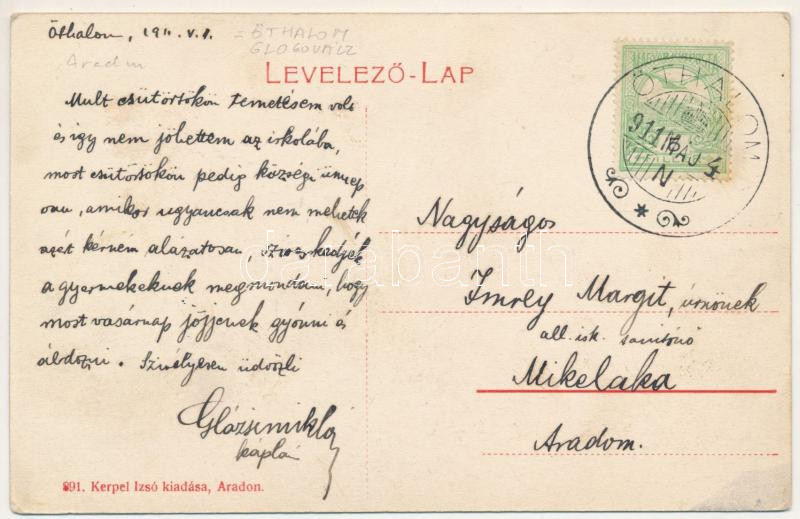 Öthalom, 1911. V. 1. = ÖTHALOM
GLOGOVÁCZ
Aradm
LEVELEZŐ-LAP
Mult csütörtökön temetésem volt
és igy nem jöhettem az iskolába,
most csütörtökön pedig községi ünnep
van, amikor ugyancsak nem mehetek
azért kérném alázatosan, sziveskedjék
a gyermekeknek megmondani, hogy
most vasárnap jöjjenek gyónni és
áldozni. Szivélyesen üdvözli
káplán
891. Kerpel Izsó kiadása, Aradon.
ÖTHALOM
911 MÁJ 4
N
Nagyságos
Imrey Margit, úrnőnek
áll. isk. tanitónő
Mikelaka
Aradom.
databanth